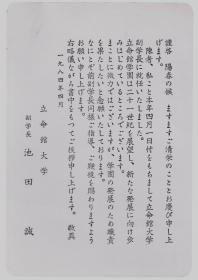 謹啓 陽春の候 ますますご清栄のこととお慶び申し上
げます。
陳者、私こと本年四月一日付をもちまして立命館大学
副学長に就任いたしました。
立命館学園は二十一世紀を展望し、新たな発展に向け歩
みはじめているところでございます。
まことに微力ではございますが、学園の発展のため職責
を果たしたいと念願いたしております。
なにとぞ前副学長同様ご指導、ご鞭撻を賜わりますよう
お願い申し上げます。
右略儀ながら書中をもってご挨拶申し上げます。 敬具
一九八四年四月
立命館大学
副学長 池田 誠